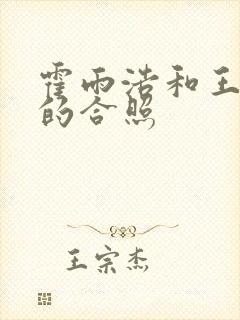 霍雨浩和王
的合照
王宗杰